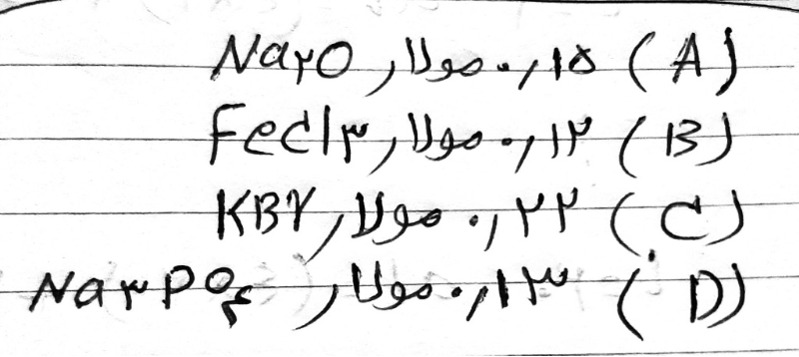 A) ۰٫۱۵ مولار Na۲O
B) ۰٫۱۲ مولار FeCl۳
C) ۰٫۲۲ مولار KBr
D) ۰٫۱۳ مولار Na۳PO۴